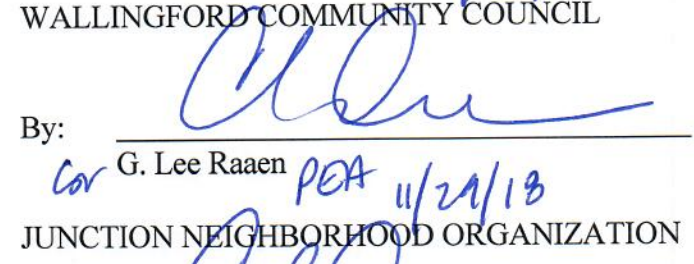 WALLINGFORD COMMUNITY COUNCIL
By:
for G. Lee Raaen PEA 11/29/18
JUNCTION NEIGHBORHOOD ORGANIZATION